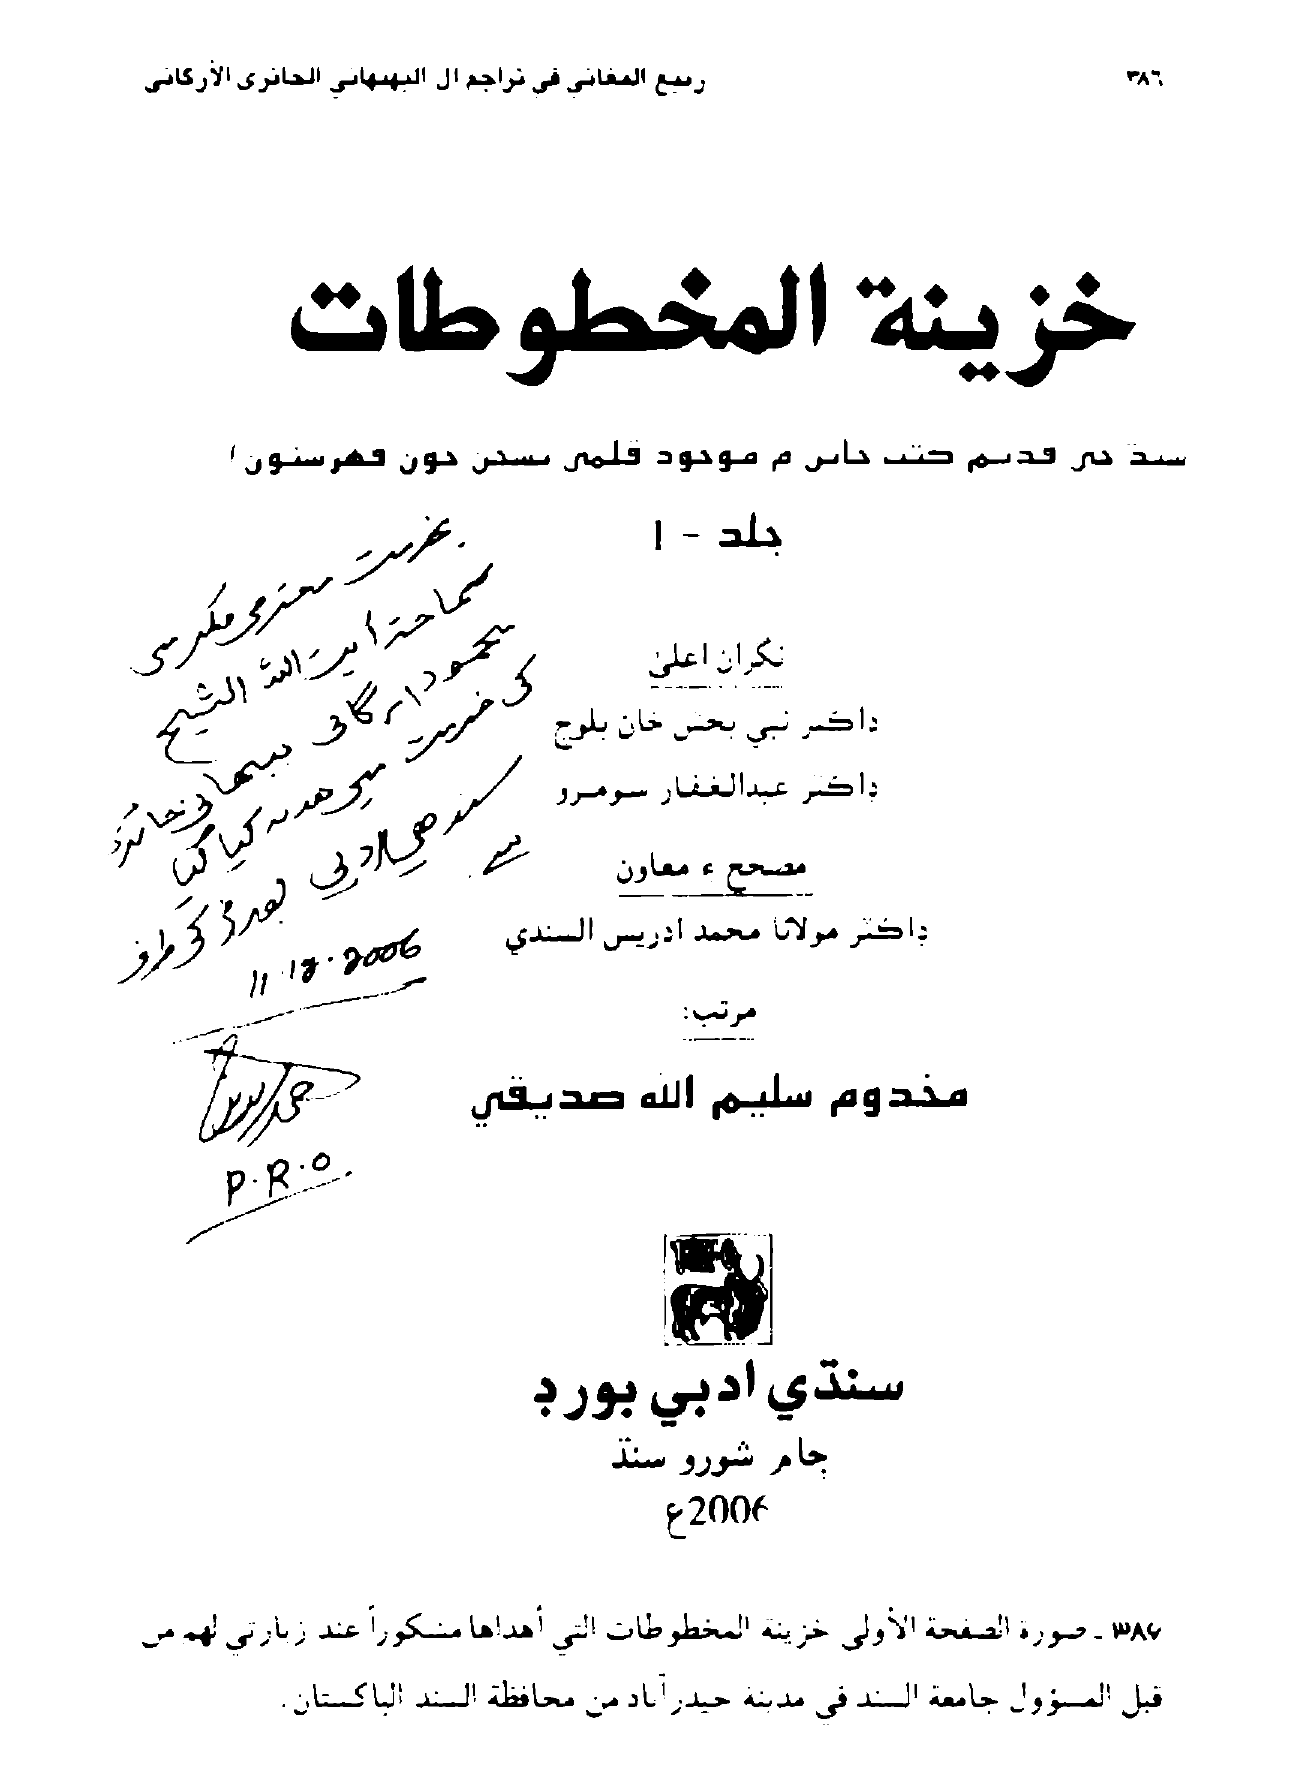 ٣٨٦
ربيع المغاني في تراجم آل البهبهاني الحائري الأركاني
خزينة المخطوطات
سنڌ جي قديم ڪتب خانن ۾ موجود قلمي نسخن جون فهرستون
جلد - ١
نگران اعليٰ
ڊاڪٽر نبي بخش خان بلوچ
ڊاڪٽر عبدالغفار سومرو
مصحح ۽ معاون
ڊاڪٽر مولانا محمد ادريس السندي
مرتب:
مخدوم سليم الله صديقي
بخدمت محترمی مکرمی
سماحة آیت الله الشیخ
محمود ارگانی بهبهانی حائری
کی خدمت میں هدیہ کیا گیا
سندھی ادبی بورڈ کی طرف
سے
11.12.2006
P.R.O.
سنڌي ادبي بورڊ
ڄام شورو سنڌ
2006ع
٣٨٧ ـ صورة الصفحة الأولى خزينة المخطوطات التي أهداها مشكوراً عند زيارتي لهم من
قبل المسؤول جامعة السند في مدينة حيدرآباد من محافظة السند الباكستان.